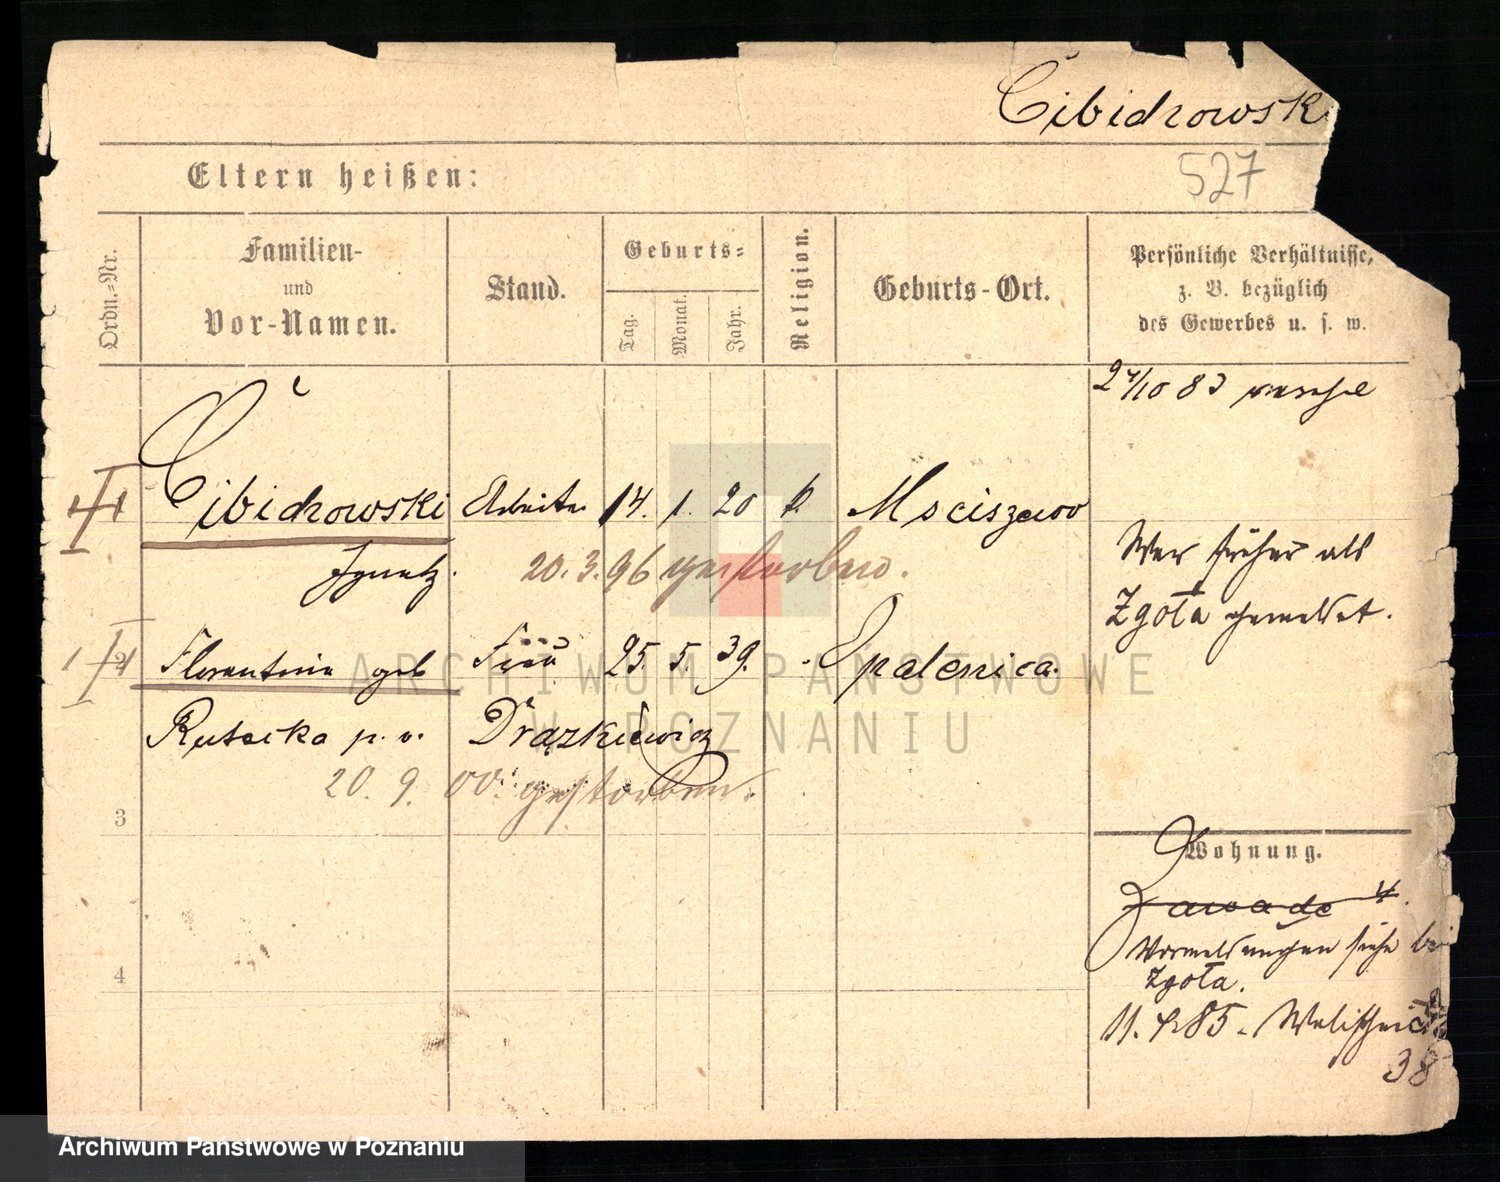 Cibidrowski
527
Eltern heißen:
Ordn.=Nr.
Familien-
und
Vor-Namen.
Stand.
Geburts=
Tag.
Monat.
Jahr.
Religion.
Geburts-Ort.
Persönliche Verhältnisse,
z. B. bezüglich
des Gewerbes u. s. w.
24/10 83
Cibidrowski Arbeiter 14. 1. 20 k. Msciszewo
Ignatz. 20. 3. 96 gestorben.
War früher als
Zgoła gemeldet.
2 Florentine geb Frau 25. 5. 39. Opalenica.
Rutecka p. v. Drążkiewicz
20. 9. 00. gestorben.
3
Wohnung.
Zawade 4.
Vormeldungen siehe bei
Zgoła.
11. 85. Wallischei
38
4
ARCHIWUM PAŃSTWOWE
W POZNANIU
Archiwum Państwowe w Poznaniu